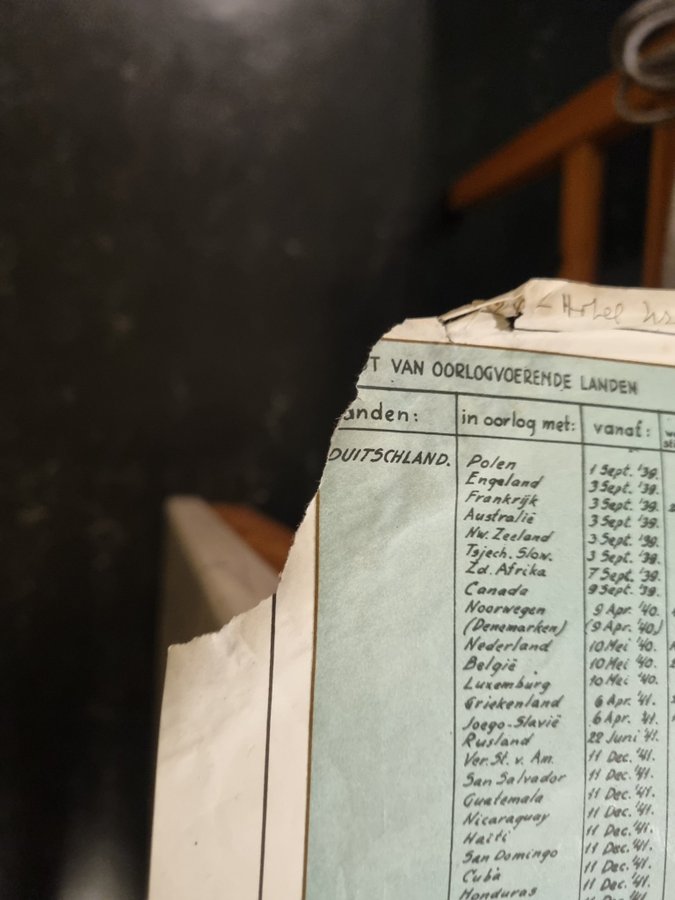 - Hotel
T VAN OORLOGVOERENDE LANDEN
anden: in oorlog met: vanaf:
DUITSCHLAND. Polen 1 Sept. '39.
Engeland 3 Sept. '39.
Frankrijk 3 Sept. '39.
Australië 3 Sept. '39.
Nw. Zeeland 3 Sept. '39.
Tsjech. Slow. 3 Sept. '39.
Zd. Afrika 7 Sept. '39.
Canada 9 Sept. '39.
Noorwegen 9 Apr. '40.
(Denemarken) (9 Apr. '40)
Nederland 10 Mei '40.
België 10 Mei '40.
Luxemburg 10 Mei '40.
Griekenland 6 Apr. '41.
Joego-Slavië 6 Apr. '41.
Rusland 22 Juni '41.
Ver. St. v. Am. 11 Dec. '41.
San Salvador 11 Dec. '41.
Guatemala 11 Dec. '41.
Nicaraguay 11 Dec. '41.
Haïti 11 Dec. '41.
San Domingo 11 Dec. '41.
Cuba 11 Dec. '41.
Honduras